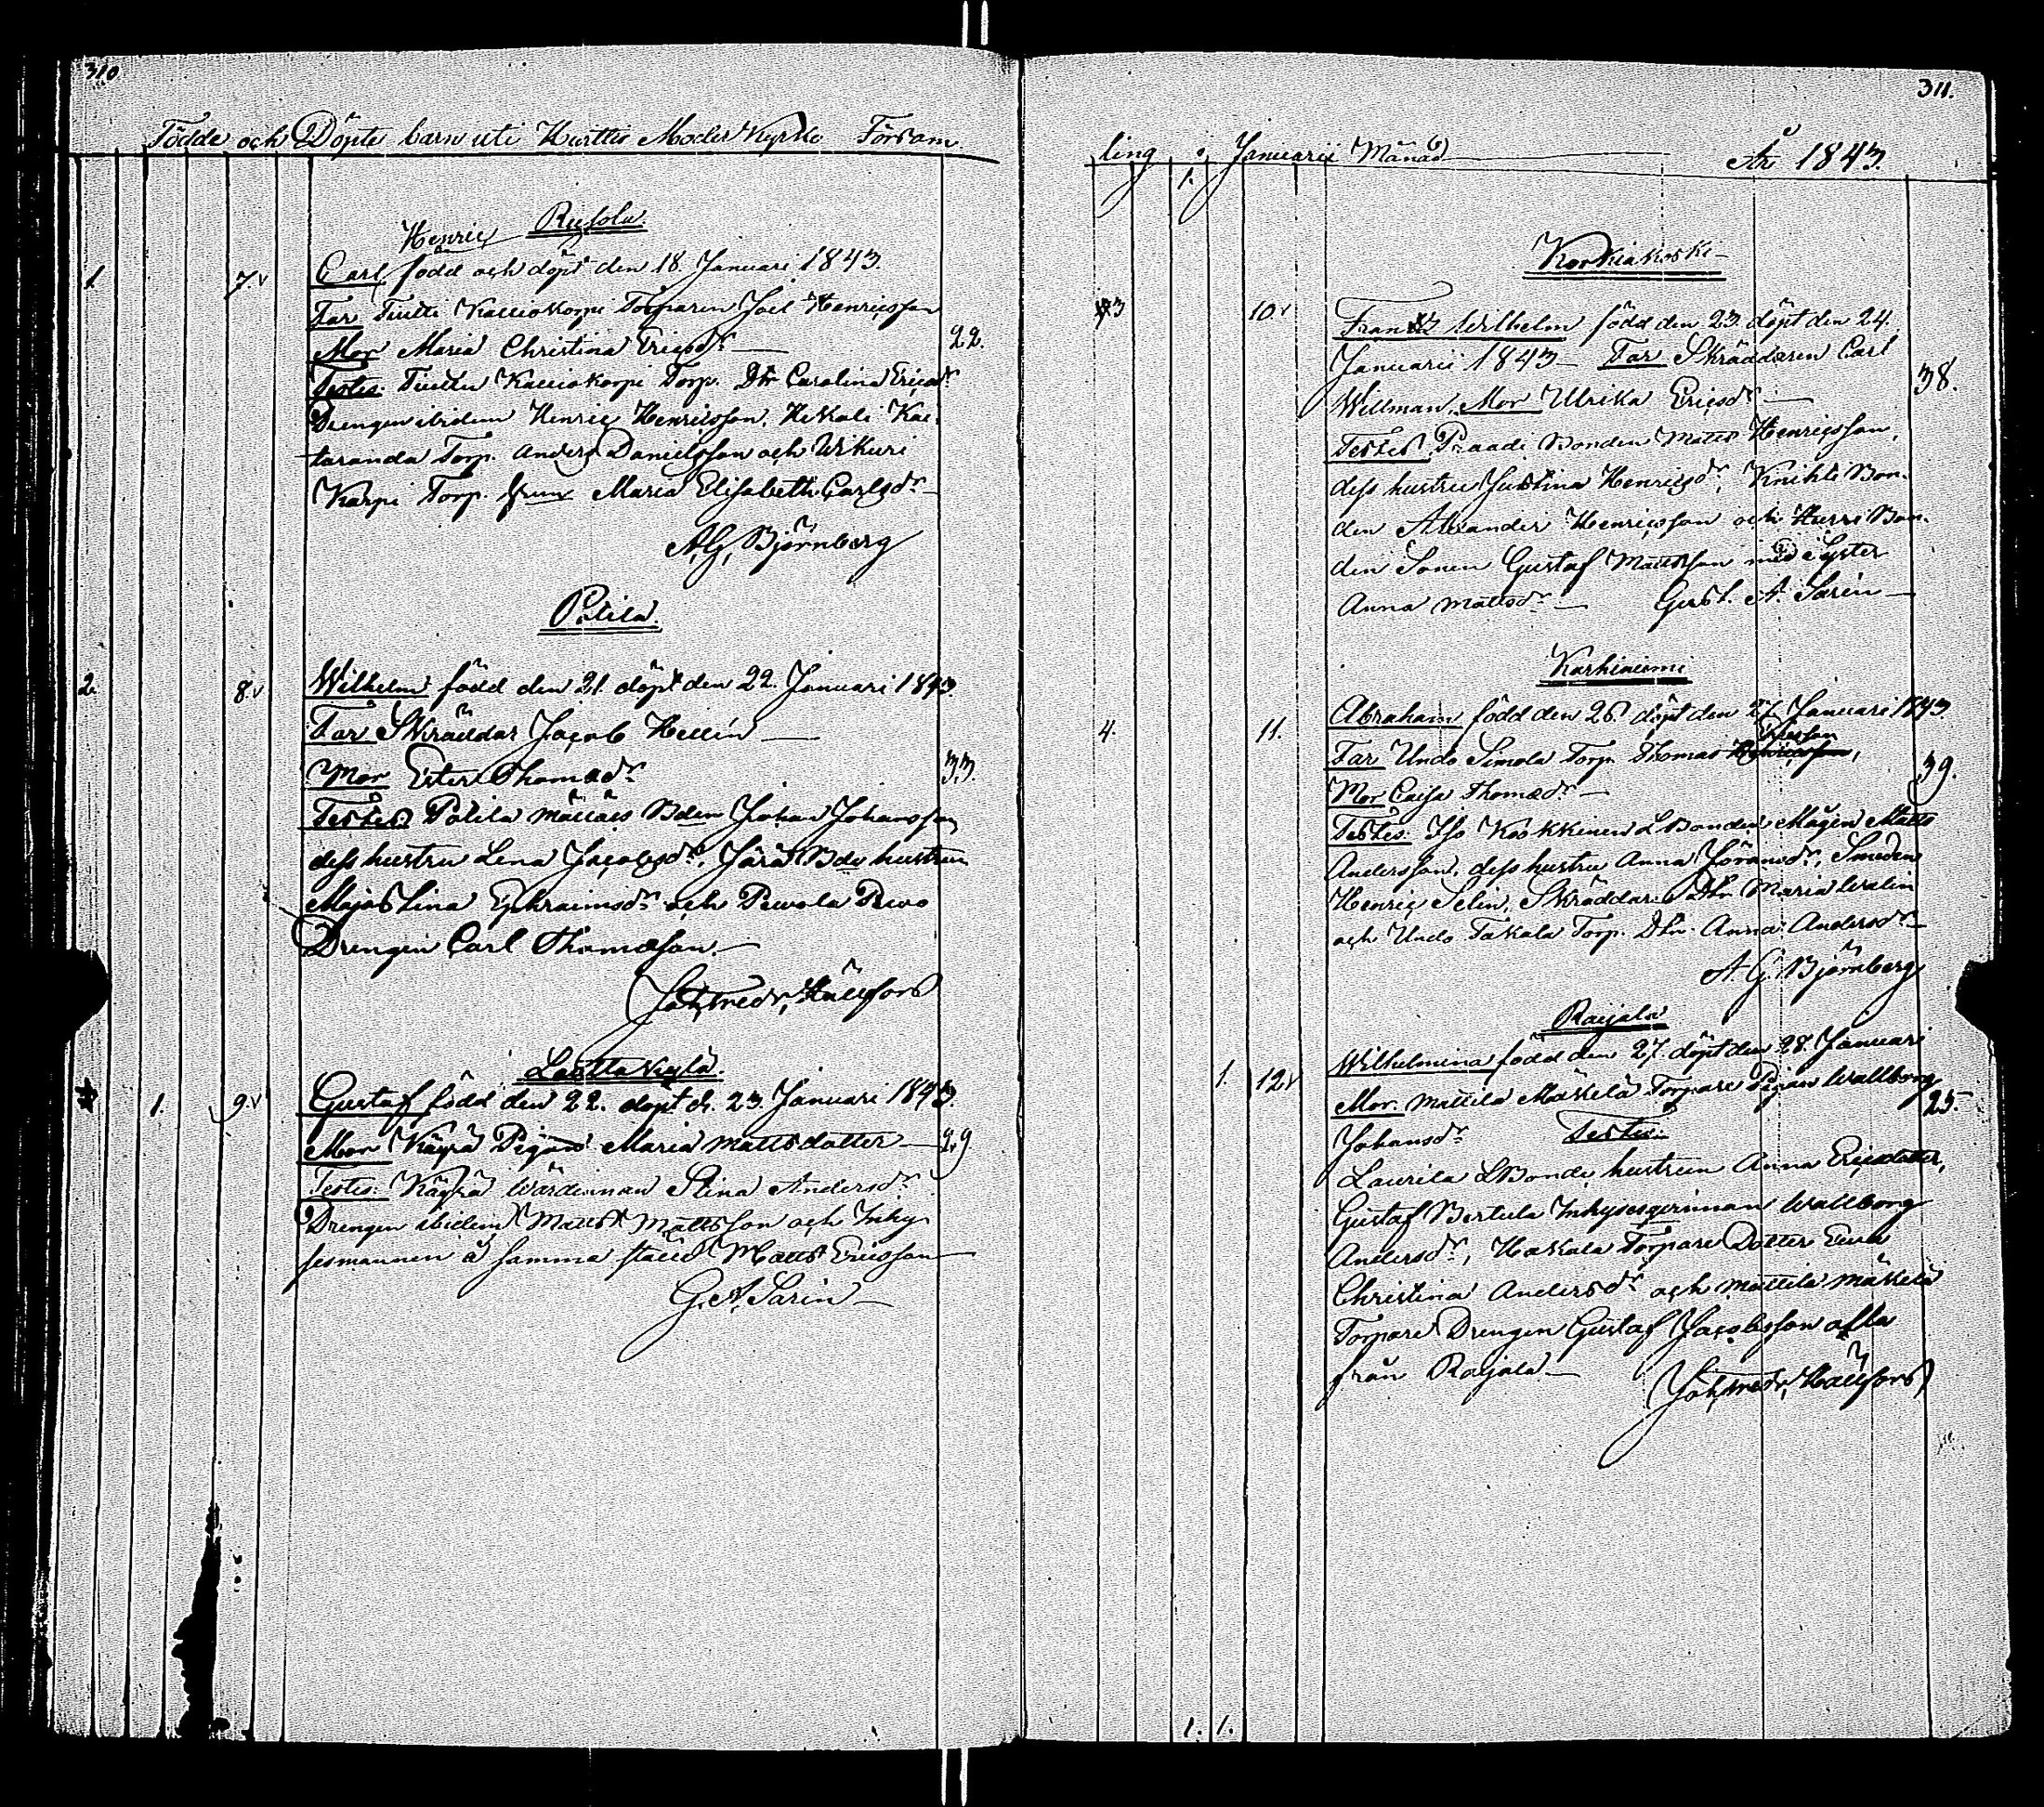 310
Födde och Döpte barn uti Huittis Moder Kyrko Församl
Rusola.
Henric
1. 7. Carl född och döpt den 18. Januari 1843.
Far Kalliokorpi Torparen Joel Henricsson
Mor Maria Christina Ericsdr 22.
Testes: Kalliokorpi Torp. Dtr Carolina Ericsdr
Drengen ibidem Henric Henricsson, Kekali
Torp. Anders Danielsson och Urkuri
Karpi Torp. Maria Elisabeth Carlsdr
A.G. Björnberg
Palila.
2. 8. Wilhelm född den 21. döpt den 22. Januari 1843.
Far Skräddar Jacob Hellin
Mor Ester Thomædr 33.
Testes Palila Bden Johan Johansson
dess hustru Lena Jacobsdr, Bde hustrun
Maja Stina Ephraimsdr och
Drengen Carl Thomæson.
Joh. Fredr. Hällfors
Lauttakylä.
1. 9. Gustaf född den 22. döpt d. 23. Januari 1843.
Mor Käyrä Pigan Maria Mattsdotter 29
Testes: Käyrä Wärdinnan Stina Andersdr
Drengen ibidem Matts Mattsson och Inhy-
sesmannen å samma ställe Matts Ericsson
G. A. Sarin
311.
ling i Januarii Månad År 1843.
1.
Korkiakoski
3 10. Frans Wilhelm född den 23. döpt den 24.
Januarii 1843 Far Skräddaren Carl
Willman, Mor Ulrika Ericsdr 38.
Testes, Praadi Bonden Matts Henricsson,
dess hustru Justina Henricsdr, Knihti Bon-
den Alexander Henricsson och Hurri Bon-
den Sonen Gustaf Mattsson med Syster
Anna Mattsdr Gust. A. Sarin
Karhiniemi
4. 11. Abraham född den 26. döpt den 27. Januari 1843.
Far Undo Simola Torp. Thomas
Mor Caisa Thomædr 39.
Testes: Iso Kookkinen LBonden Mågen Matts
Andersson, dess hustru Anna Göransdr, Smeden
Henric Selin, Skräddar Dtr Maria Walin
och Undo Takala Torp. Dtr Anna Andersdr
A. G. Björnberg
Raijala
1. 12. Wilhelmina född den 27. döpt den 28. Januari
Mor. Mattila Mäkelä Torpare Pigan Wallborg
Johansdr Testes: 25.
Laurila LBonde hustrun Anna Ericsdotter,
Gustaf Bertula Inhysesqwinnan Wallborg
Andersdr, Hakala Torpare Dotter Eva
Christina Andersdr och Mattila Mäkelä
Torpare Drengen Gustaf Jacobsson alla
från Raijala
Joh. Fredr. Hällfors
1. 1.